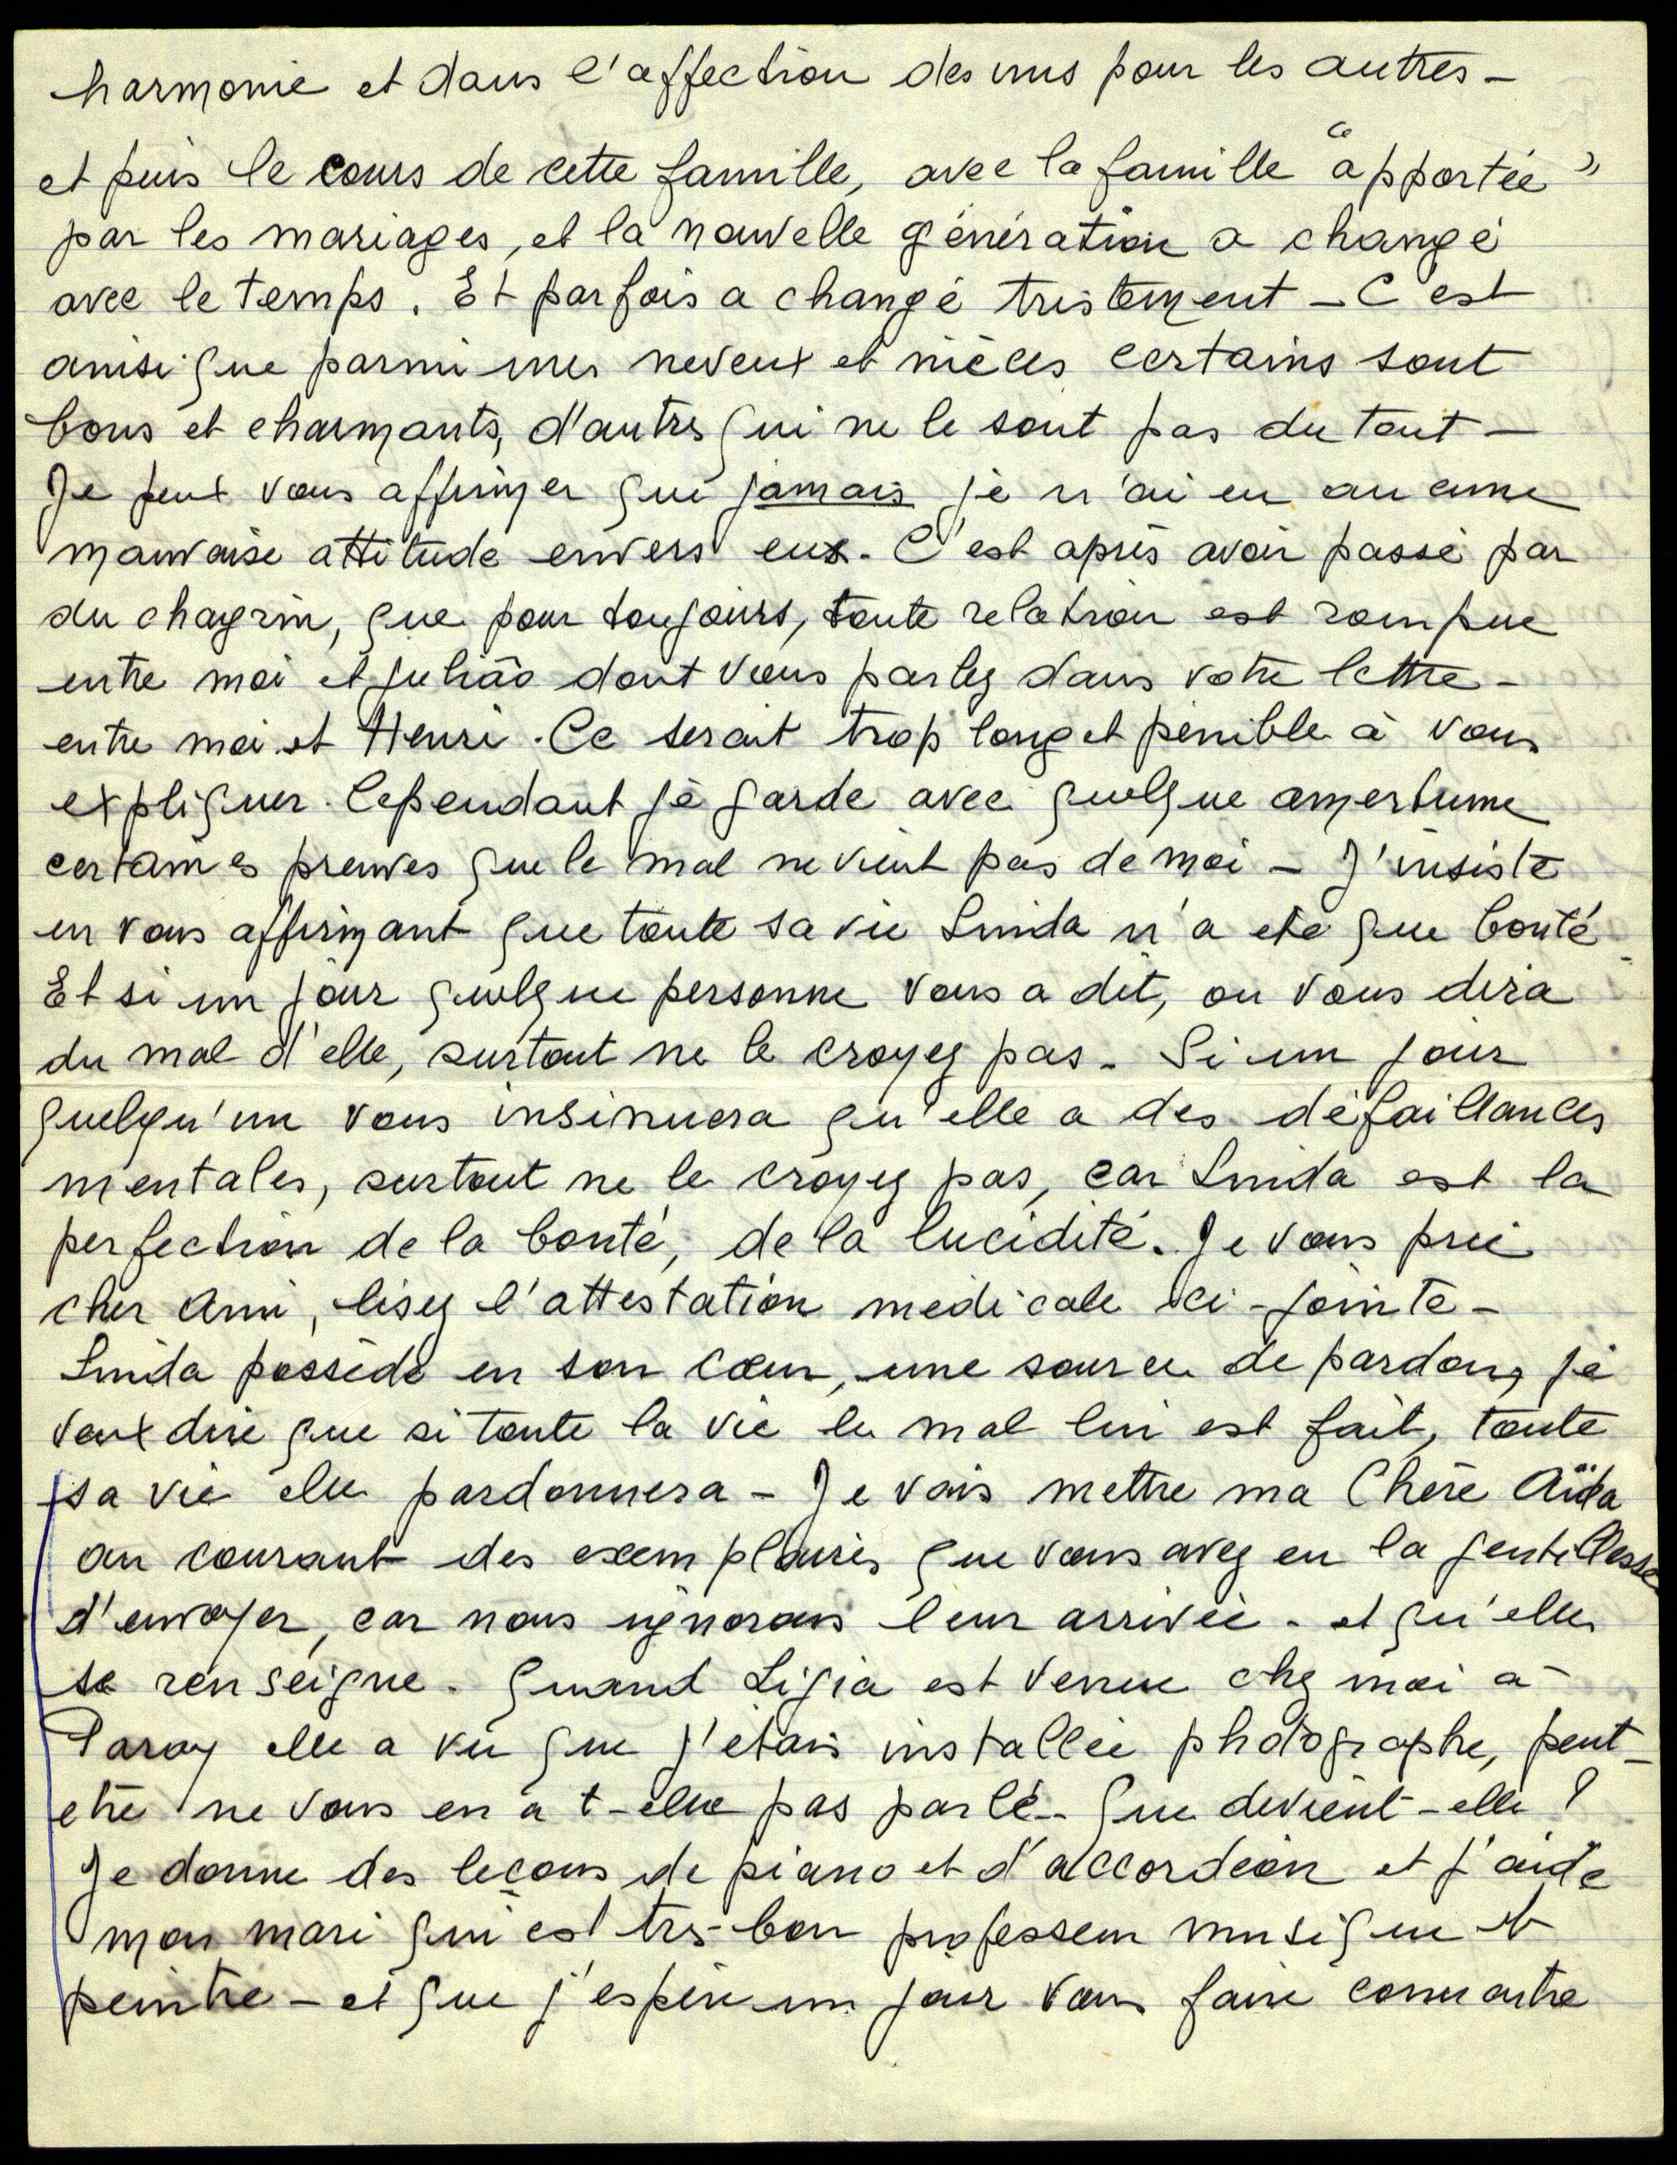 harmonie et dans l'affection des uns pour les autres –
et puis le cours de cette famille, avec la famille "apportée"
par les mariages, et la nouvelle génération a changé
avec le temps. Et parfois a changé tristement – C'est
ainsi que parmi mes neveux et nièces certains sont
bons et charmants, d'autres qui ne le sont pas du tout –
Je peux vous affirmer que jamais je n'ai eu aucune
mauvaise attitude envers eux. C'est après avoir passé par
du chagrin, que pour toujours, toute relation est rompue
entre moi et Julião dont vous parlez dans votre lettre –
entre moi et Henri. Ce serait trop long et pénible à vous
expliquer. Cependant je garde avec quelque amertume
certaines preuves que le mal ne vient pas de moi – J'insiste
en vous affirmant que toute sa vie Linida n'a été que bonté –
Et si un jour quelque personne vous a dit, ou vous dira
du mal d'elle, surtout ne le croyez pas – Si un jour
quelqu'un vous insinuera qu'elle a des défaillances
mentales, surtout ne le croyez pas, car Linida est la
perfection de la bonté, de la lucidité. Je vous prie
cher Ami, lisez l'attestation médicale ici-jointe –
Linida possède en son cœur, une source de pardons, je
veux dire que si toute la vie le mal lui est fait, toute
sa vie elle pardonnera – Je vais mettre ma Chère Aïda
au courant des exemplaires que vous avez eu la gentillesse
d'envoyer, car nous ignorons leur arrivée – et qu'elle
se renseigne. Quand Ligia est venue chez moi à
Paray elle a vu que j'étais installée photographe, peut-
etre ne vous en a t-elle pas parlé – Que devient-elle ?
Je donne des leçons de piano et d'accordéon et j'aide
mon mari qui est très-bon professeur musique et
peintre – et que j'espère un jour vous faire connaitre